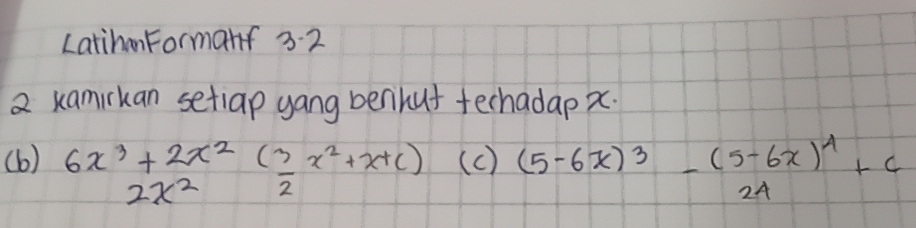 Latihan Formatif 3.2
2 kamirkan setiap yang berikut terhadap x.
(b) 6x³ + 2x² / 2x² (3/2 x² + x + c) (c) (5-6x)³ - (5-6x)⁴ / 24 + c